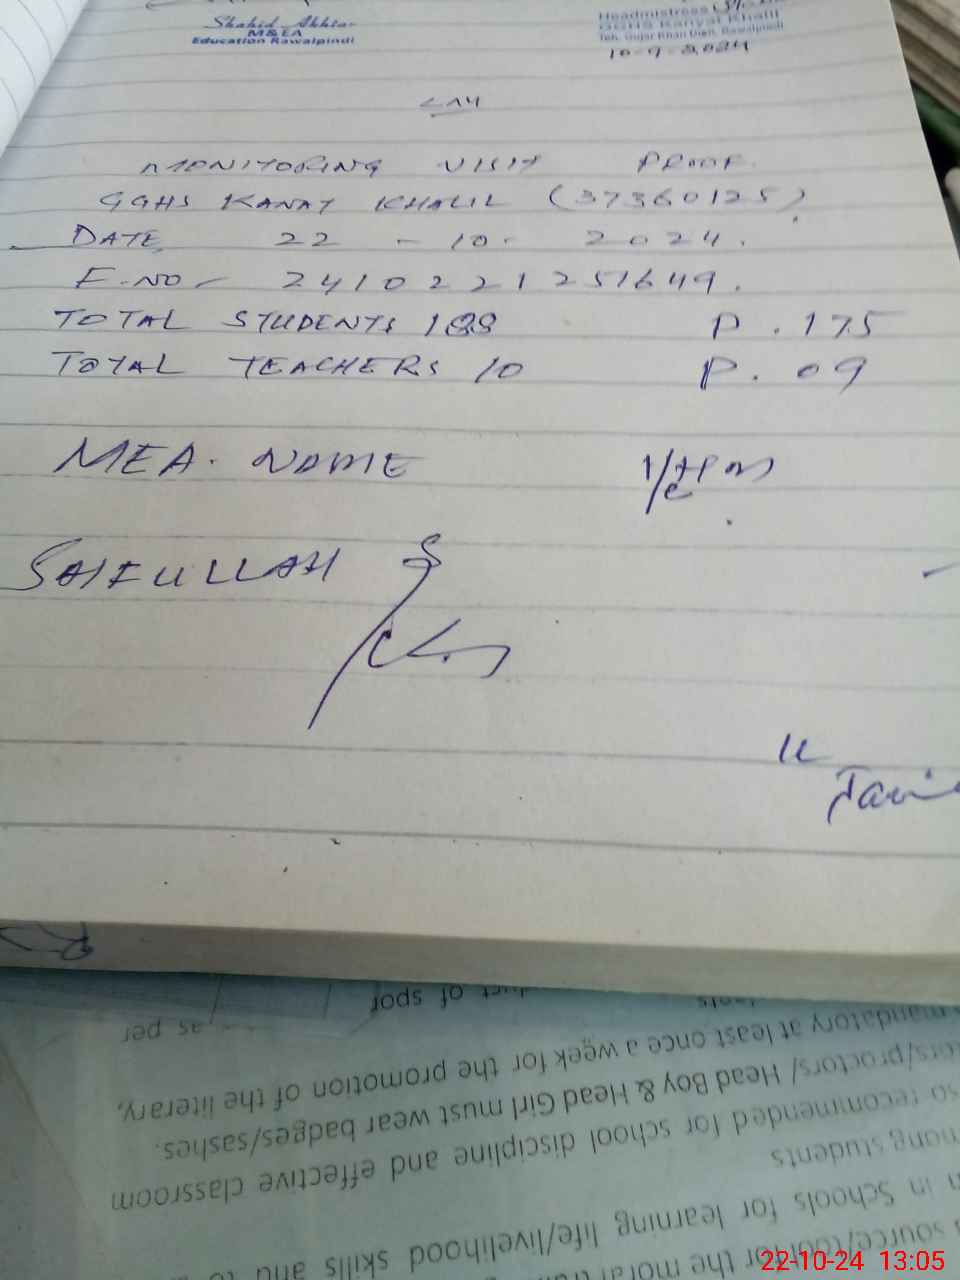 Shahid Akhtar
M&EA
Education Rawalpindi
Headmistress
GGHS Kanyat Khalil
Teh. Gujar Khan Distt. Rawalpindi
10-9-2024
MONITORING VISIT PROOF.
GGHS KANAT KHALIL (37360125)
DATE 22 - 10 - 2024.
F.NO - 2410221251649.
TOTAL STUDENTS 188 P. 175
TOTAL TEACHERS 10 P. 09
MEA. NAME
SAIFULLAH
mong students
so recommended for school discipline and effective classroom
tors/proctors/ Head Boy & Head Girl must wear badges/sashes.
mandatory at least once a week for the promotion of the literary,
duct of spor
as per
in Schools for learning life/livelihood skills and
source/tool for the moral
22-10-24 13:05